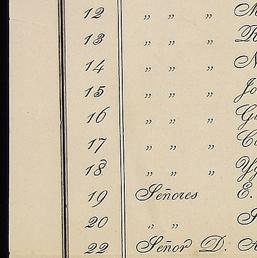 12 " " "
13 " " "
14 " " "
15 " " "
16 " " "
17 " " "
18 " " "
19 Señores E.
20 " "
22 Señor D.